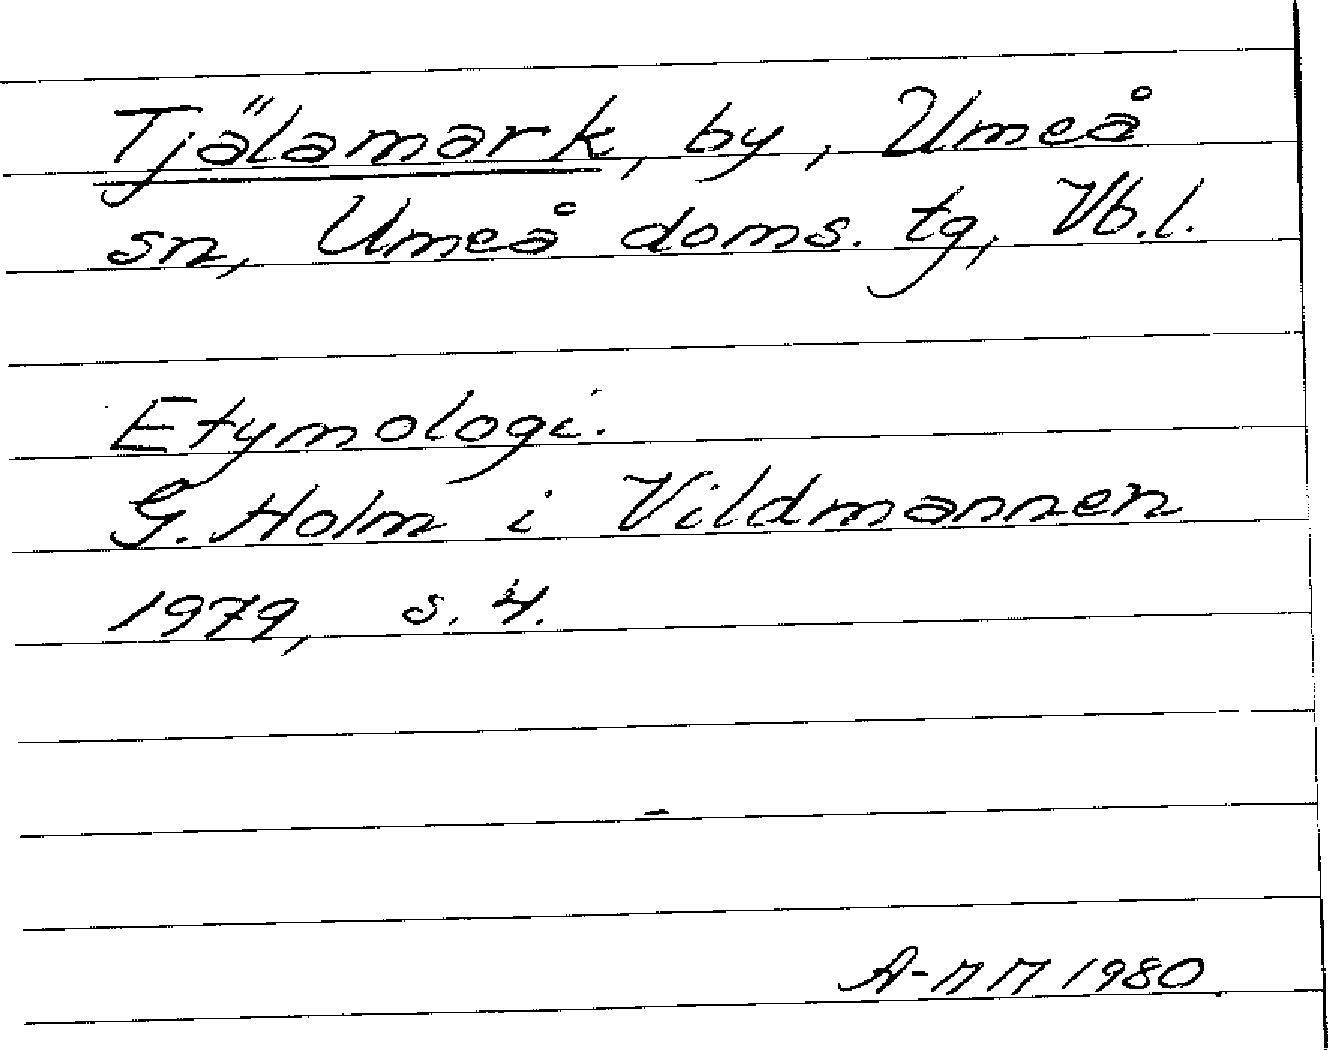 Tjälamark, by, Umeå
sn, Umeå doms. tg, Vb.l.
Etymologi.
G. Holm i Vildmannen
1979, s. 4.
A-MM 1980.